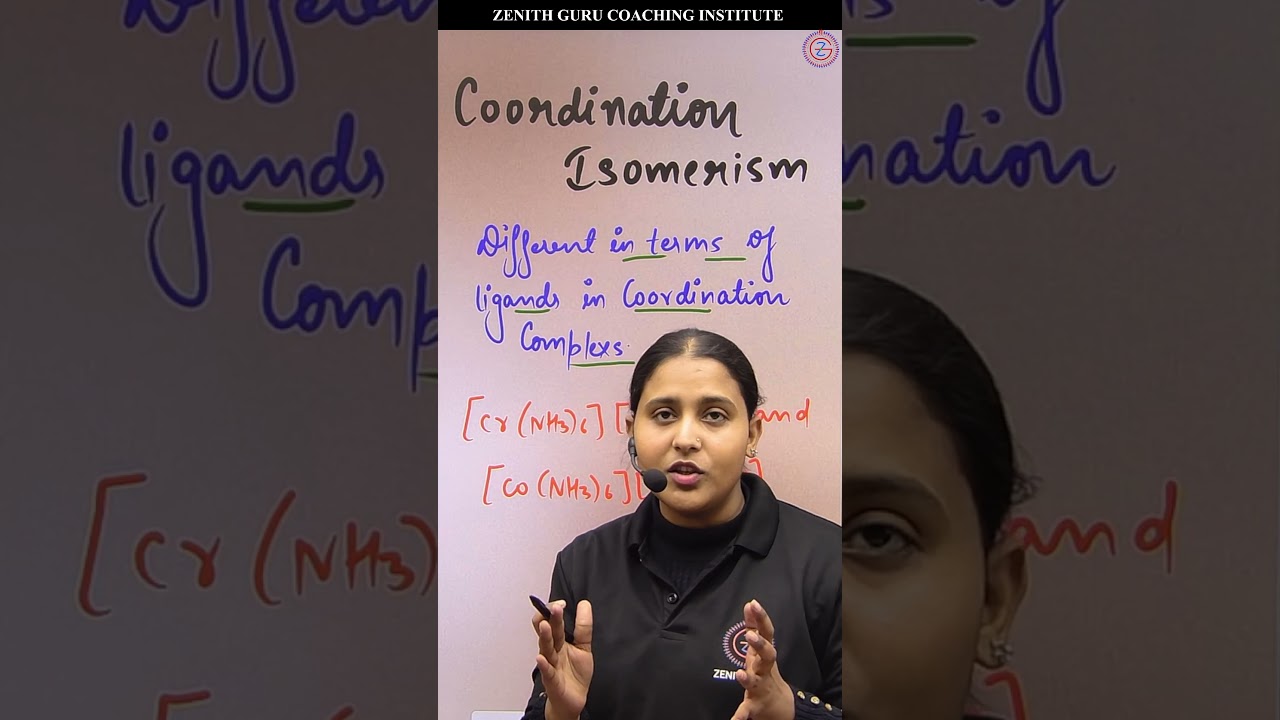 ZENITH GURU COACHING INSTITUTE
Coordination
Isomerism
Different in terms of
ligands in Coordination
Complexs.
[Cr(NH3)6][ and
[Co(NH3)6][ ]
ZENI